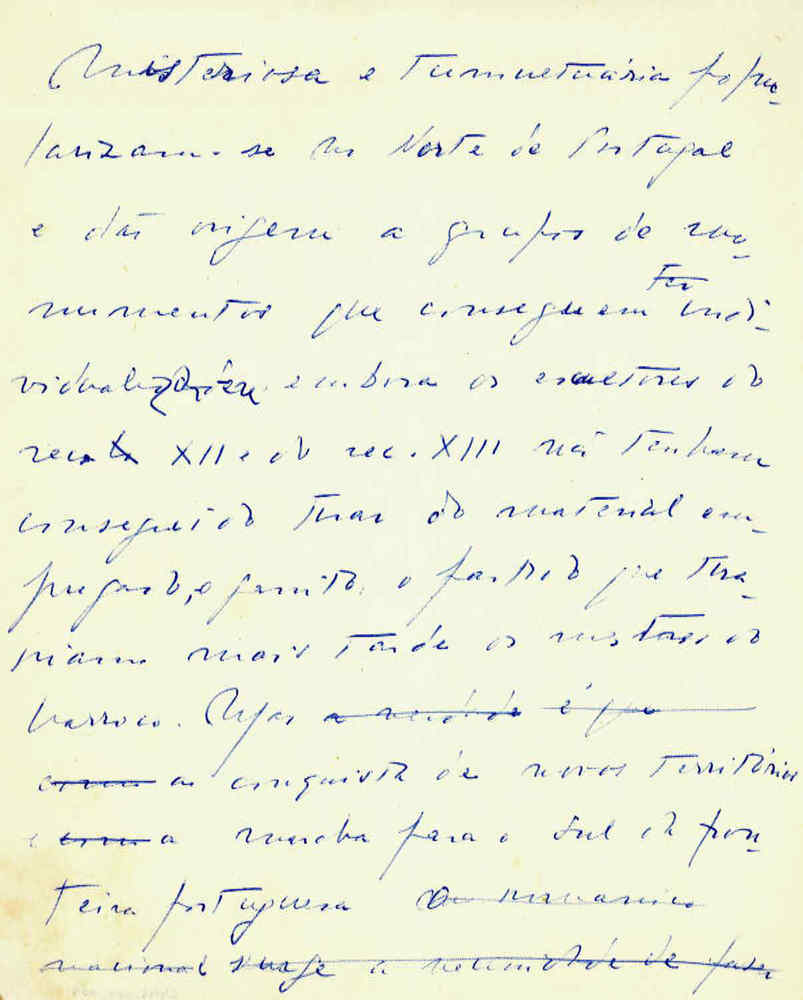 Misteriosa e tumultuária popu-
larizam-se no Norte de Portugal
e dão origem a grupos de mo-
numentos que conseguem ter indi-
vidualidade embora os escultores do
sec. XII e do sec. XIII não tenham
conseguido tirar do material em-
pregado, o granito, o partido que tira-
riam mais tarde os mestres do
barroco. Mas a verdade é que
com a conquista de novos territórios
e com a marcha para o Sul da fron-
teira portuguesa o romanico
nacional surge a necessidade de fazer